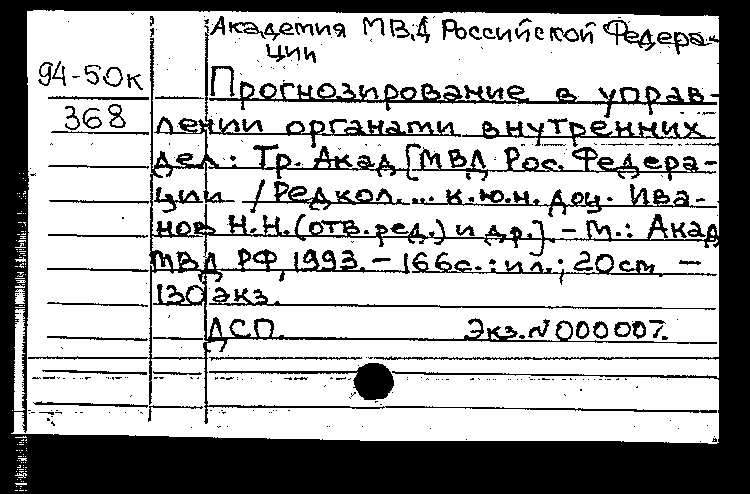 Академия МВД Российской Федера-
ции
94-50к
368
Прогнозирование в управ-
лении органами внутренних
дел: Тр. Акад [МВД Рос. Федера-
ции / Редкол. ... к.ю.н. доц. Ива-
нов Н.Н. (отв. ред.) и др.]. - М.: Акад
МВД РФ, 1993. - 166с.: ил.; 20см. -
130 экз.
ДСП. Экз. N 000007.